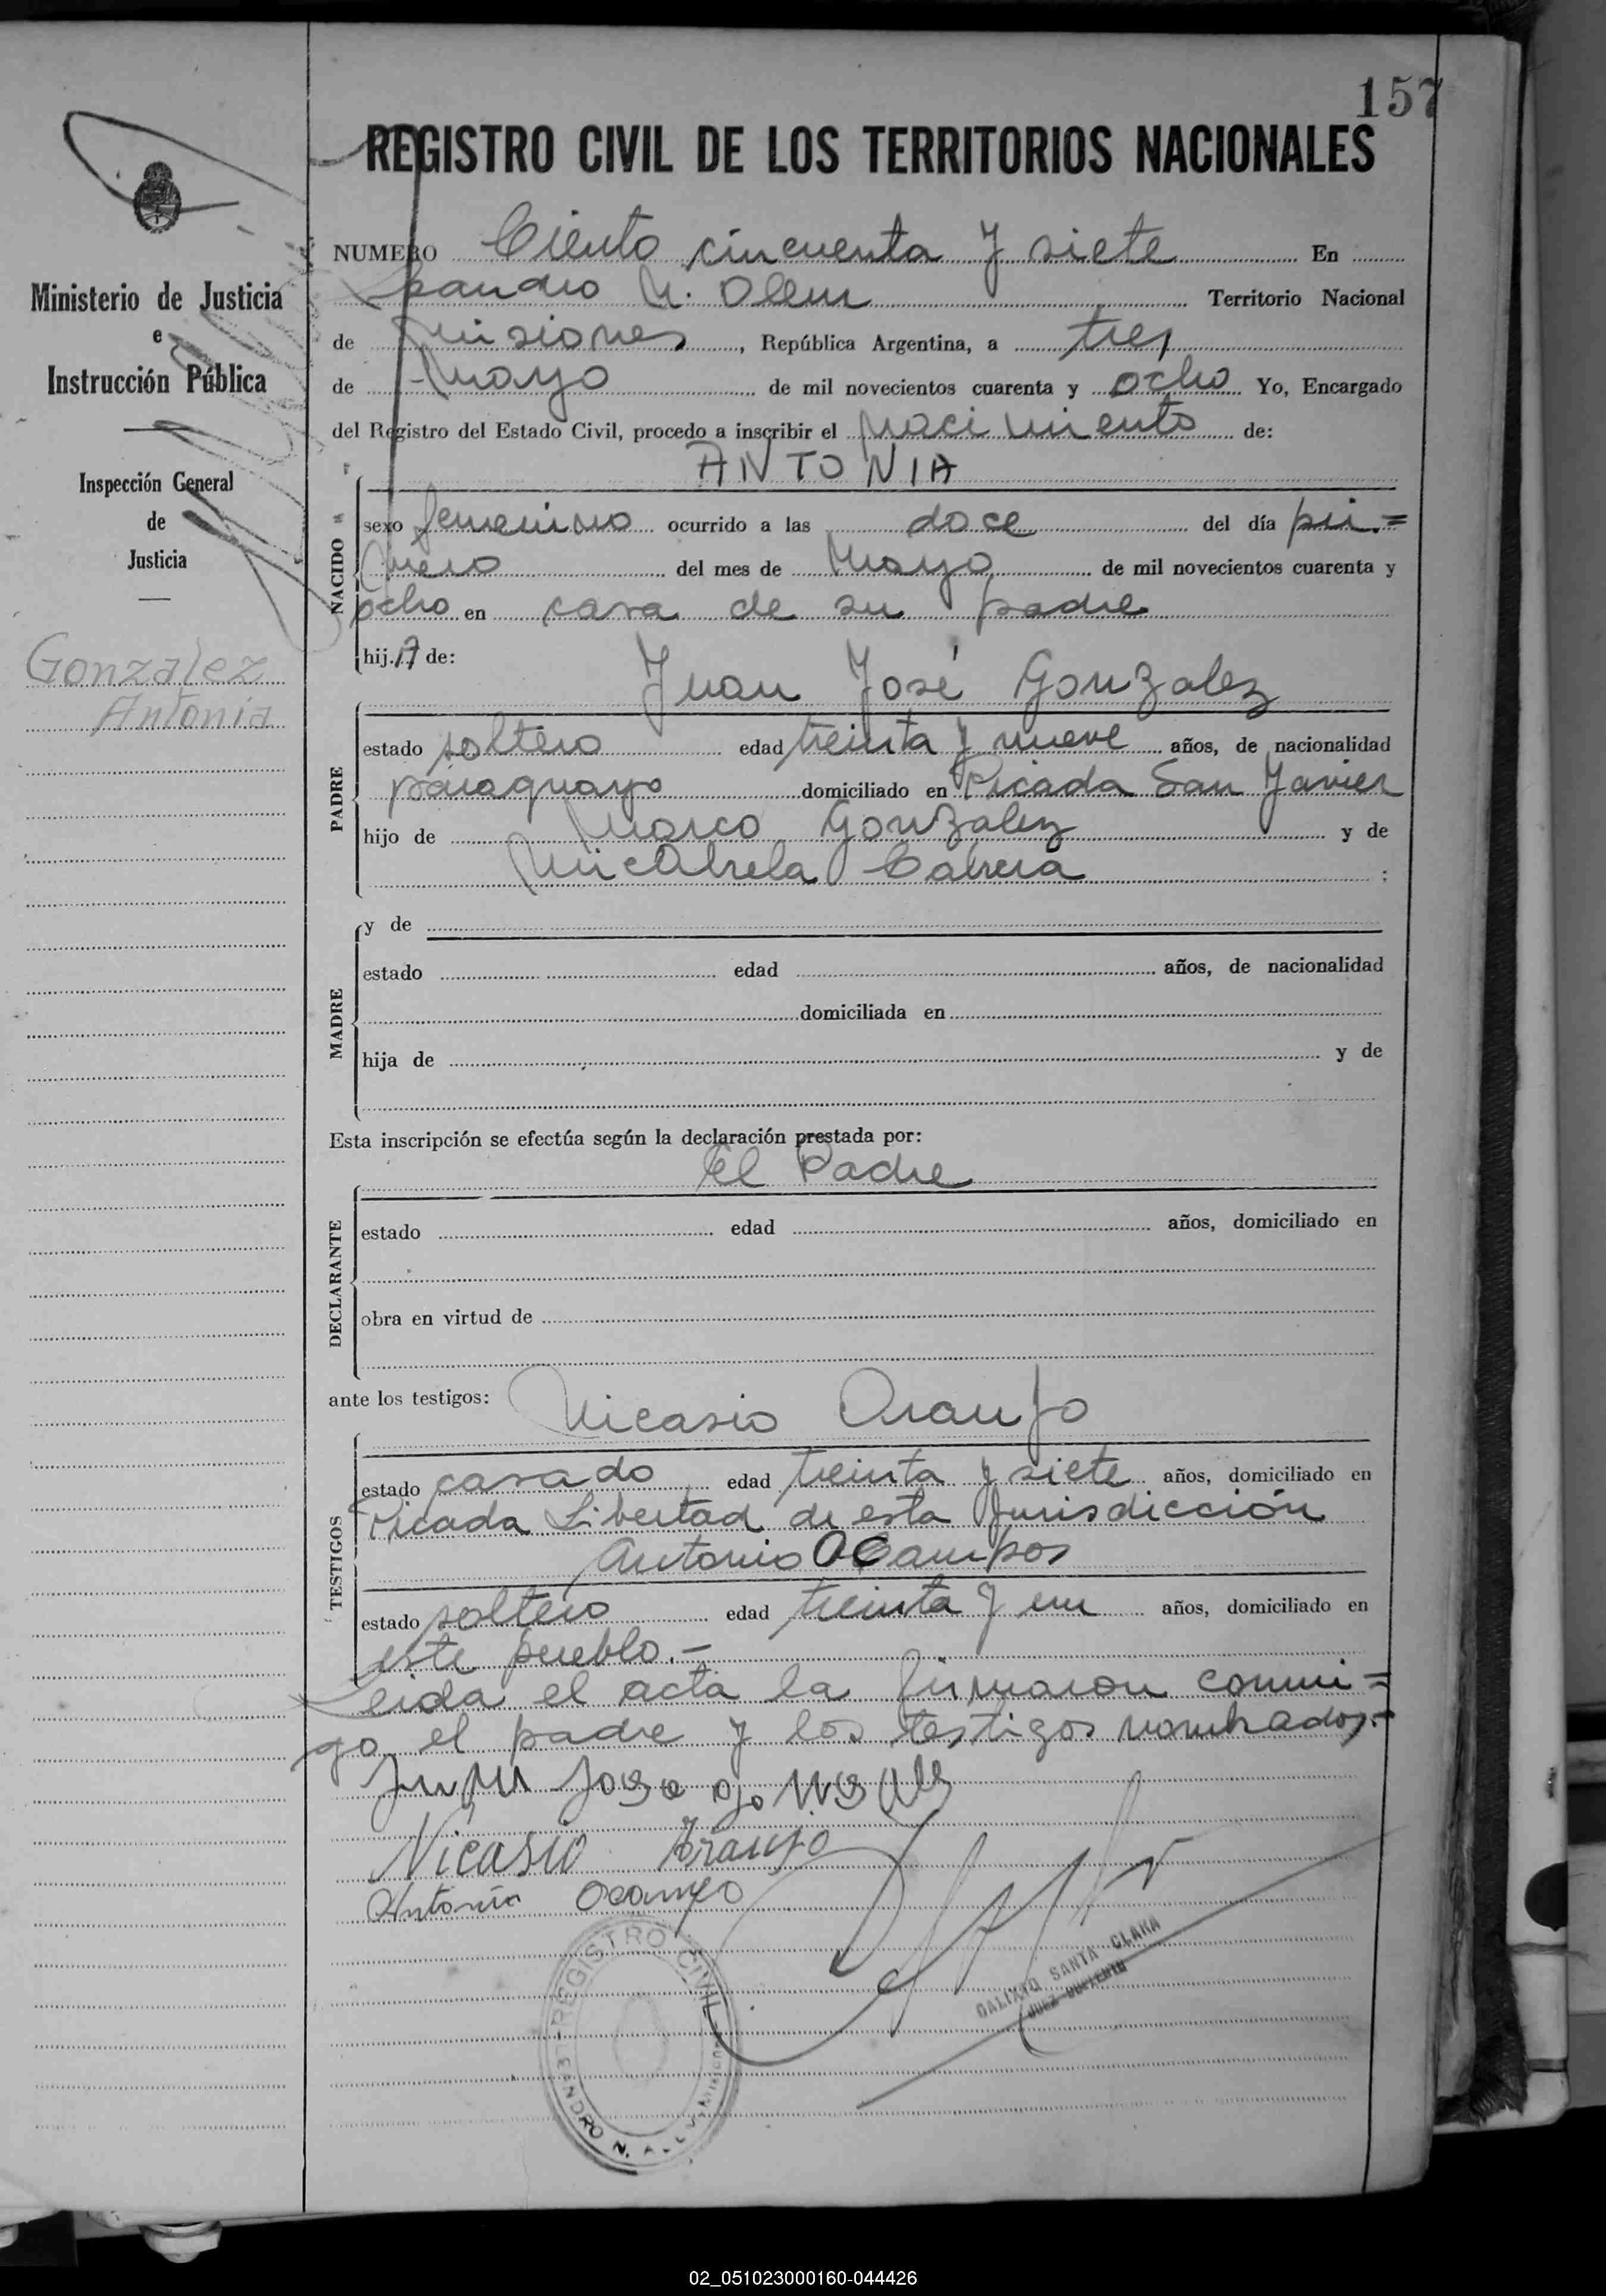 157
REGISTRO CIVIL DE LOS TERRITORIOS NACIONALES
Ministerio de Justicia
e
Instrucción Pública
Inspección General
de
Justicia
Gonzalez
Antonia
NUMERO Ciento cincuenta y siete En
Leandro N. Alem Territorio Nacional
de Misiones, República Argentina, a tres
de Mayo de mil novecientos cuarenta y ocho Yo, Encargado
del Registro del Estado Civil, procedo a inscribir el nacimiento de:
ANTONIA
NACIDO
sexo femenino ocurrido a las doce del día pri.=
mero del mes de Mayo de mil novecientos cuarenta y
ocho en casa de su padre
hij A de:
Juan José Gonzalez
PADRE
estado soltero edad treinta y nueve años, de nacionalidad
paraguayo domiciliado en Picada San Javier
hijo de Marco Gonzalez y de
Cabrera ;
MADRE
y de
estado edad años, de nacionalidad
domiciliada en
hija de y de
Esta inscripción se efectúa según la declaración prestada por:
El Padre
DECLARANTE
estado edad años, domiciliado en
obra en virtud de
ante los testigos: Nicasio Araujo
TESTIGOS
estado casado edad treinta y siete años, domiciliado en
Picada Libertad de esta Jurisdicción
Antonio OCampos
estado soltero edad treinta y un años, domiciliado en
este pueblo.-
Leida el acta la firmaron conmi=
go, el padre y los testigos nombrados.-
Juan Jose
Nicasio Araujo
Antonio Ocampo
REGISTRO CIVIL
LEANDRO N. ALEM
CALIXTO SANTA CLARA
JUEZ SUPLENTE
02_051023000160-044426